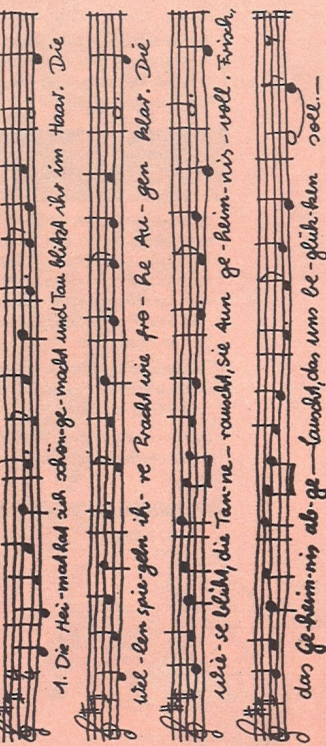 1. Die Hei-mat hat sich schön ge-macht und Tau blitzt ihr im Haar. Die
Wel-len spie-geln ih-re Pracht wie fro-he Au-gen klar. Die
Wie-se blüht, die Tan-ne rauscht, sie tun ge-heim-nis-voll. Frisch,
das Ge-heim-nis ab-ge-lauscht, das uns be-glük-ken soll.